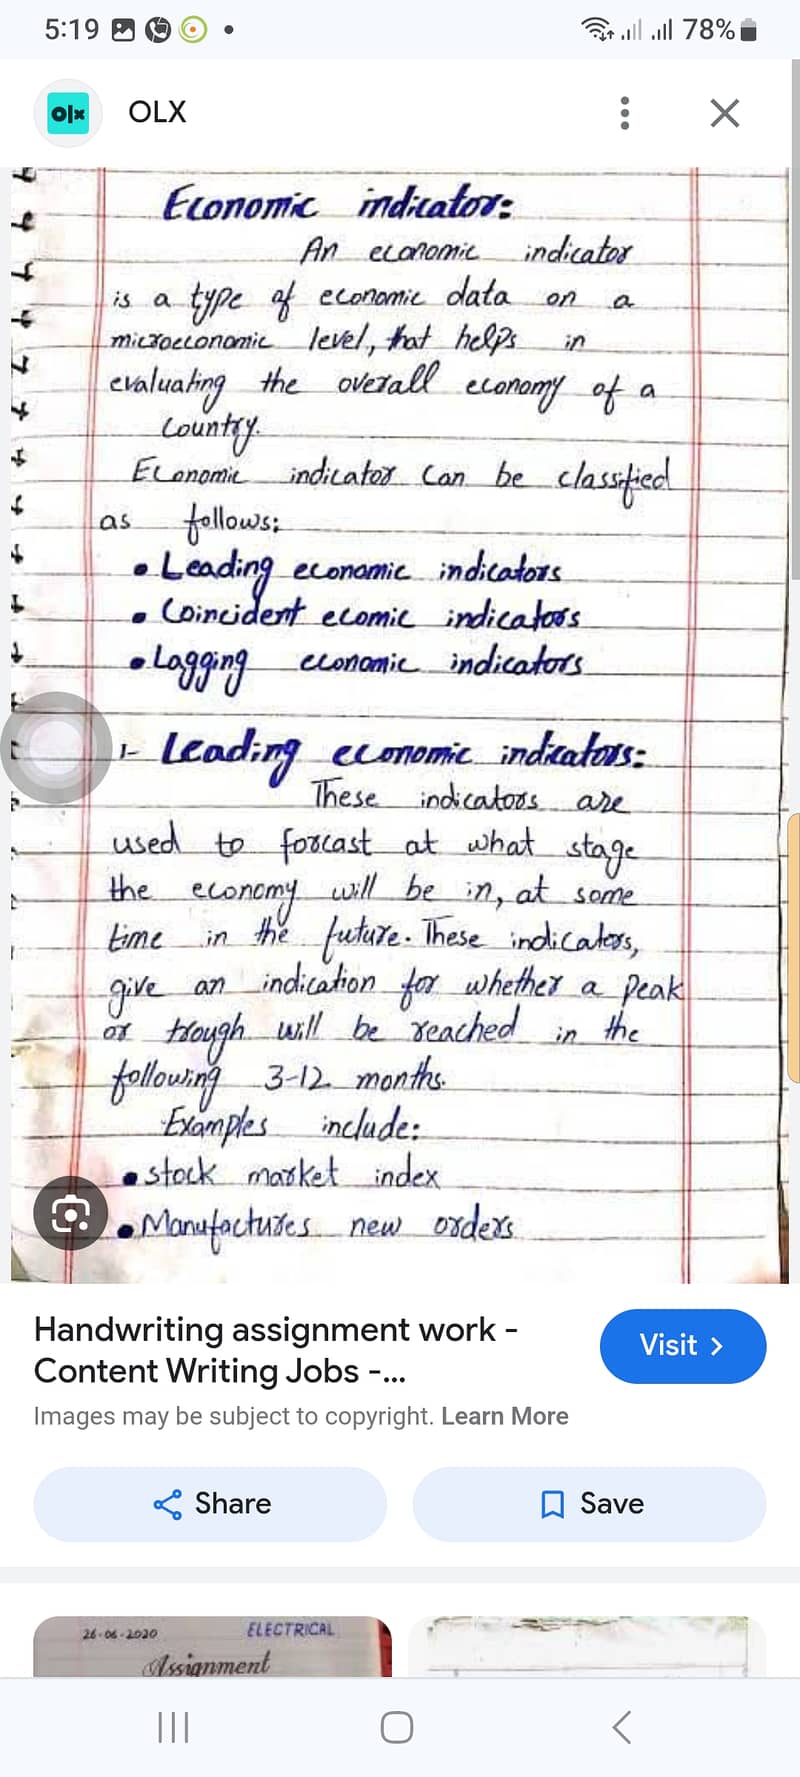 5:19
78%
olx
OLX
Economic indicator:
An economic indicator
is a type of economic data on a
microeconomic level, that helps in
evaluating the overall economy of a
Country.
Economic indicator can be classified
as follows:
• Leading economic indicators
• Coincident ecomic indicators
• Lagging economic indicators
1- Leading economic indicators:
These indicators are
used to forcast at what stage
the economy will be in, at some
time in the future. These indicators,
give an indication for whether a peak
or trough will be reached in the
following 3-12 months.
Examples include:
• stock market index
• Manufactures new orders
Handwriting assignment work -
Content Writing Jobs -...
Visit >
Images may be subject to copyright. Learn More
Share
Save
26-06-2020
ELECTRICAL
Assignment